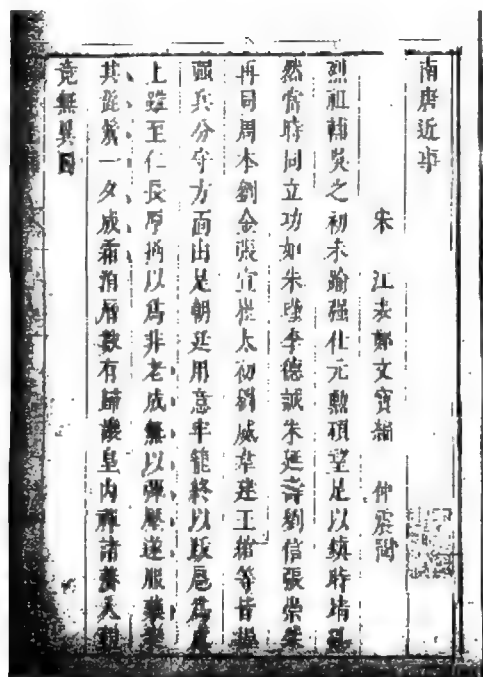 南唐近事
宋 江表鄭文寶編 仲震閱
烈祖輔吳之初未踰强仕元勲碩望足以鎮時靖亂
然當時同立功如朱瑾李德誠朱延壽劉信張崇柴
再同周本劉金張宣崔太初劉威韋建王綰等皆握
强兵分守方面由是朝廷用意牢籠終以跋扈爲慮
上雖至仁長厚猶以爲非老成無以彈壓遂服藥變
其髭鬢一夕成霜洎曆數有歸讓皇內禪諸藩入覲
竟無異圖